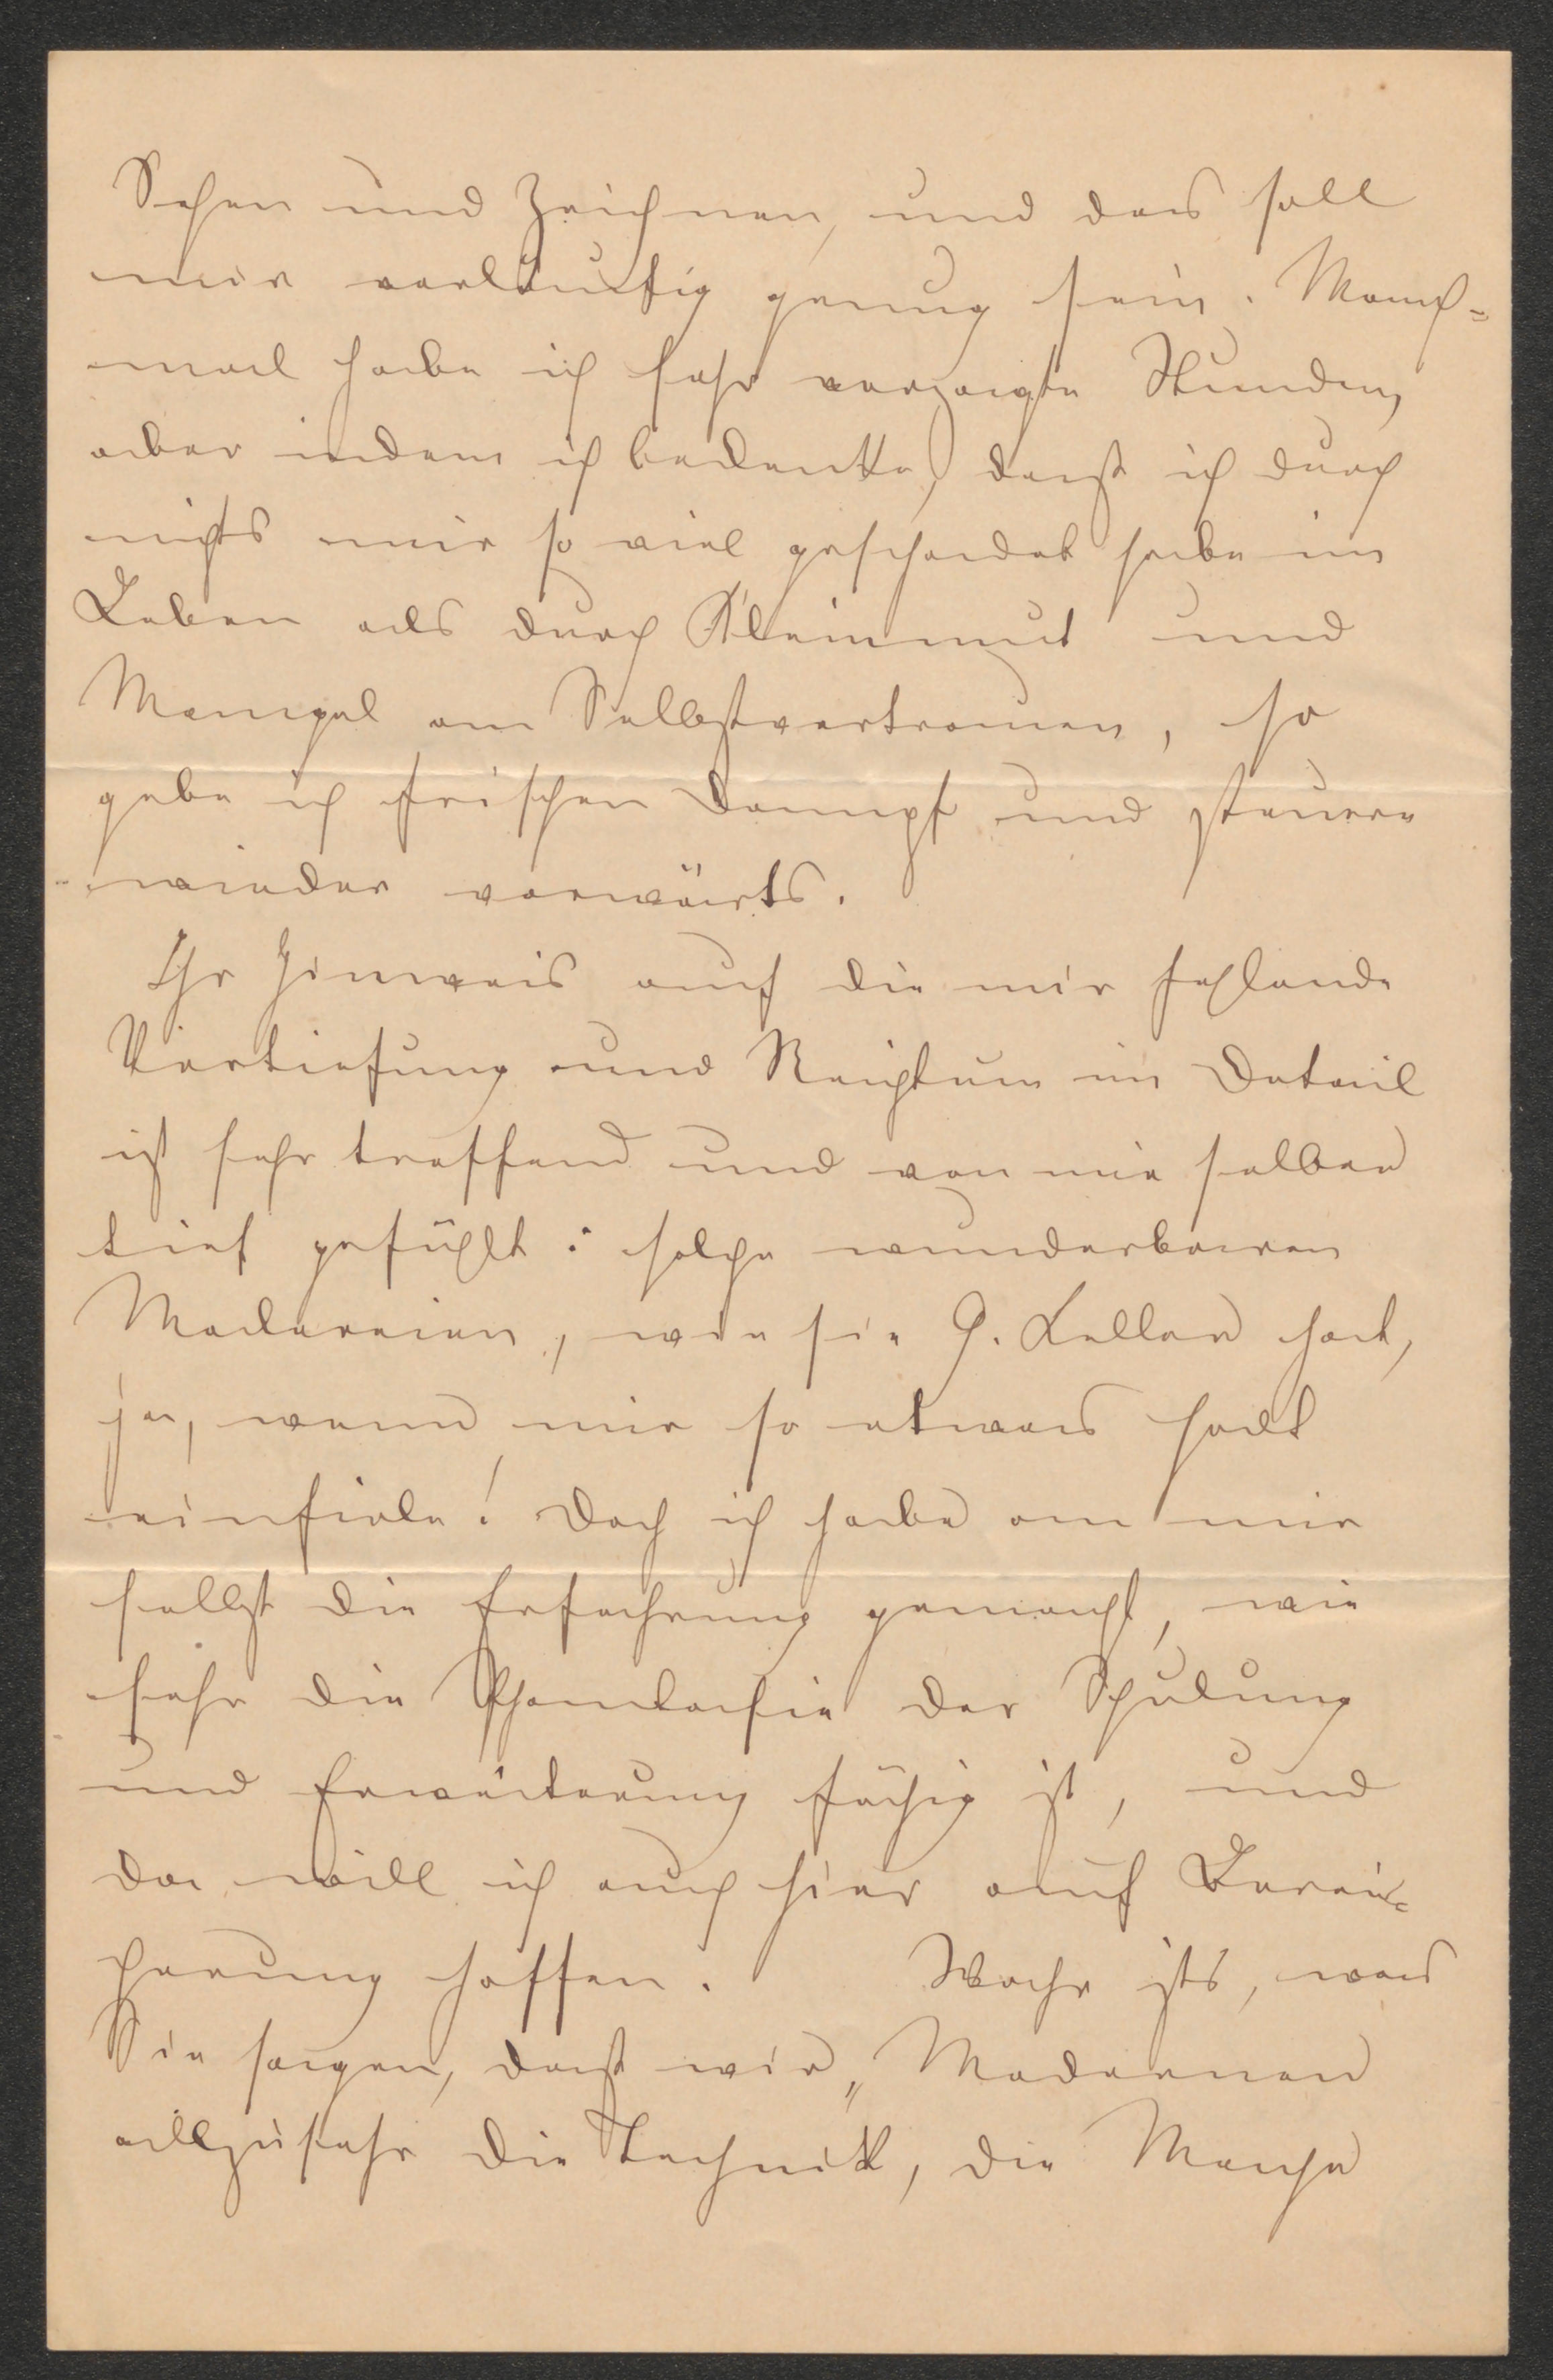 Sehen und Zeichnen, und das soll
mir vorläufig genug sein. Manch-
mal habe ich sehr verzagte Stunden,
aber indem ich bedenke, dasz ich durch
nichts mir so viel geschadet habe im
Leben als durch Kleinmut und
Mangel an Selbstvertrauen, so
gebe ich frischen Dampf und steuere
wieder vorwärts.
Ihr Hinweis auf die mir fehlende
Vertiefung und Reichtum im Detail
ist sehr treffend und von mir selber
tief gefühlt: solche wunderbaren
Malereien, wie sie G. Keller hat,
ja, wenn mir so etwas halt
einfiele! Doch ich habe an mir
selbst die Erfahrung gemacht, wie
sehr die Phantasie der Schulung
und Erweiterung fähig ist, und
da will ich auch hier auf Berei-
cherung hoffen. Wahr ists, was
Sie sagen, dasz wir „Modernen
allzusehr die Technik, die Mache